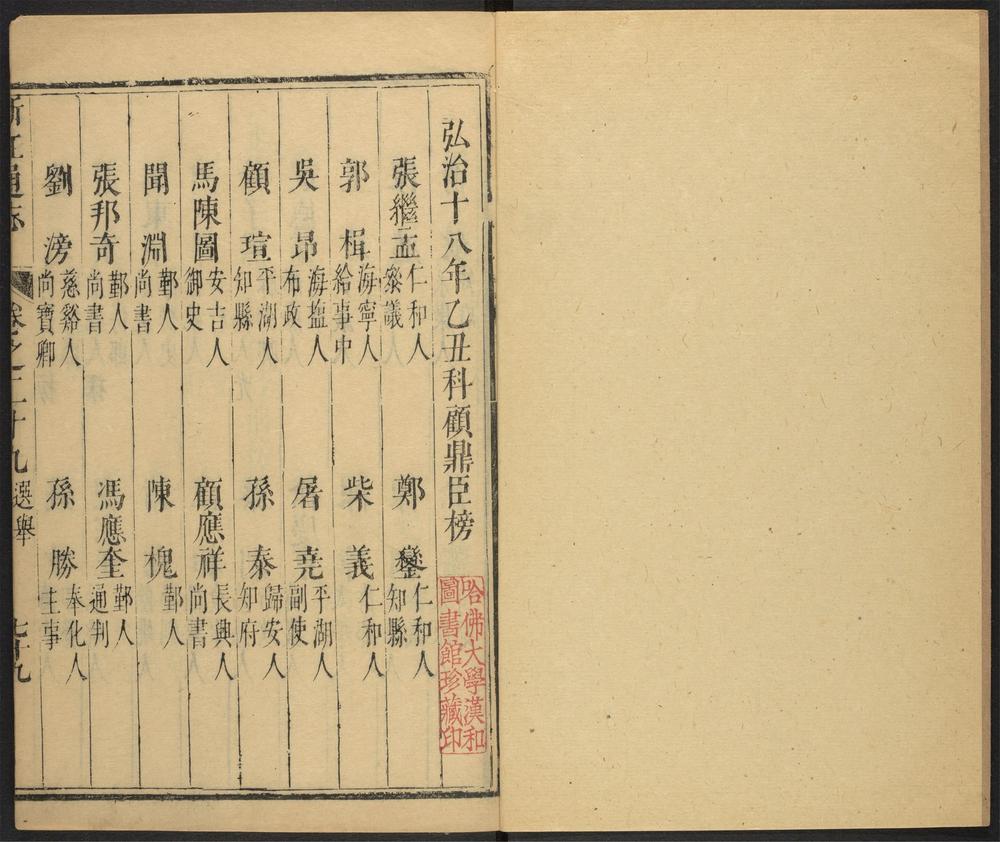 弘治十八年乙丑科顧鼎臣榜
張繼孟 仁和人 叅議
鄭鑾 仁和人 知縣
郭楫 海寧人 給事中
柴義 仁和人
吳昂 海塩人 布政
屠堯 平湖人 副使
顧瑄 平湖人 知縣
孫泰 歸安人 知府
馬陳圖 安吉人 御史
顧應祥 長興人 尚書
聞淵 鄞人 尚書
陳槐 鄞人
張邦奇 鄞人 尚書
馮應奎 鄞人 通判
劉滂 慈谿人 尚寶卿
孫勝 奉化人 主事
浙江通志 卷之二十九 選舉 七十九
哈佛大學漢和
圖書館珍藏印